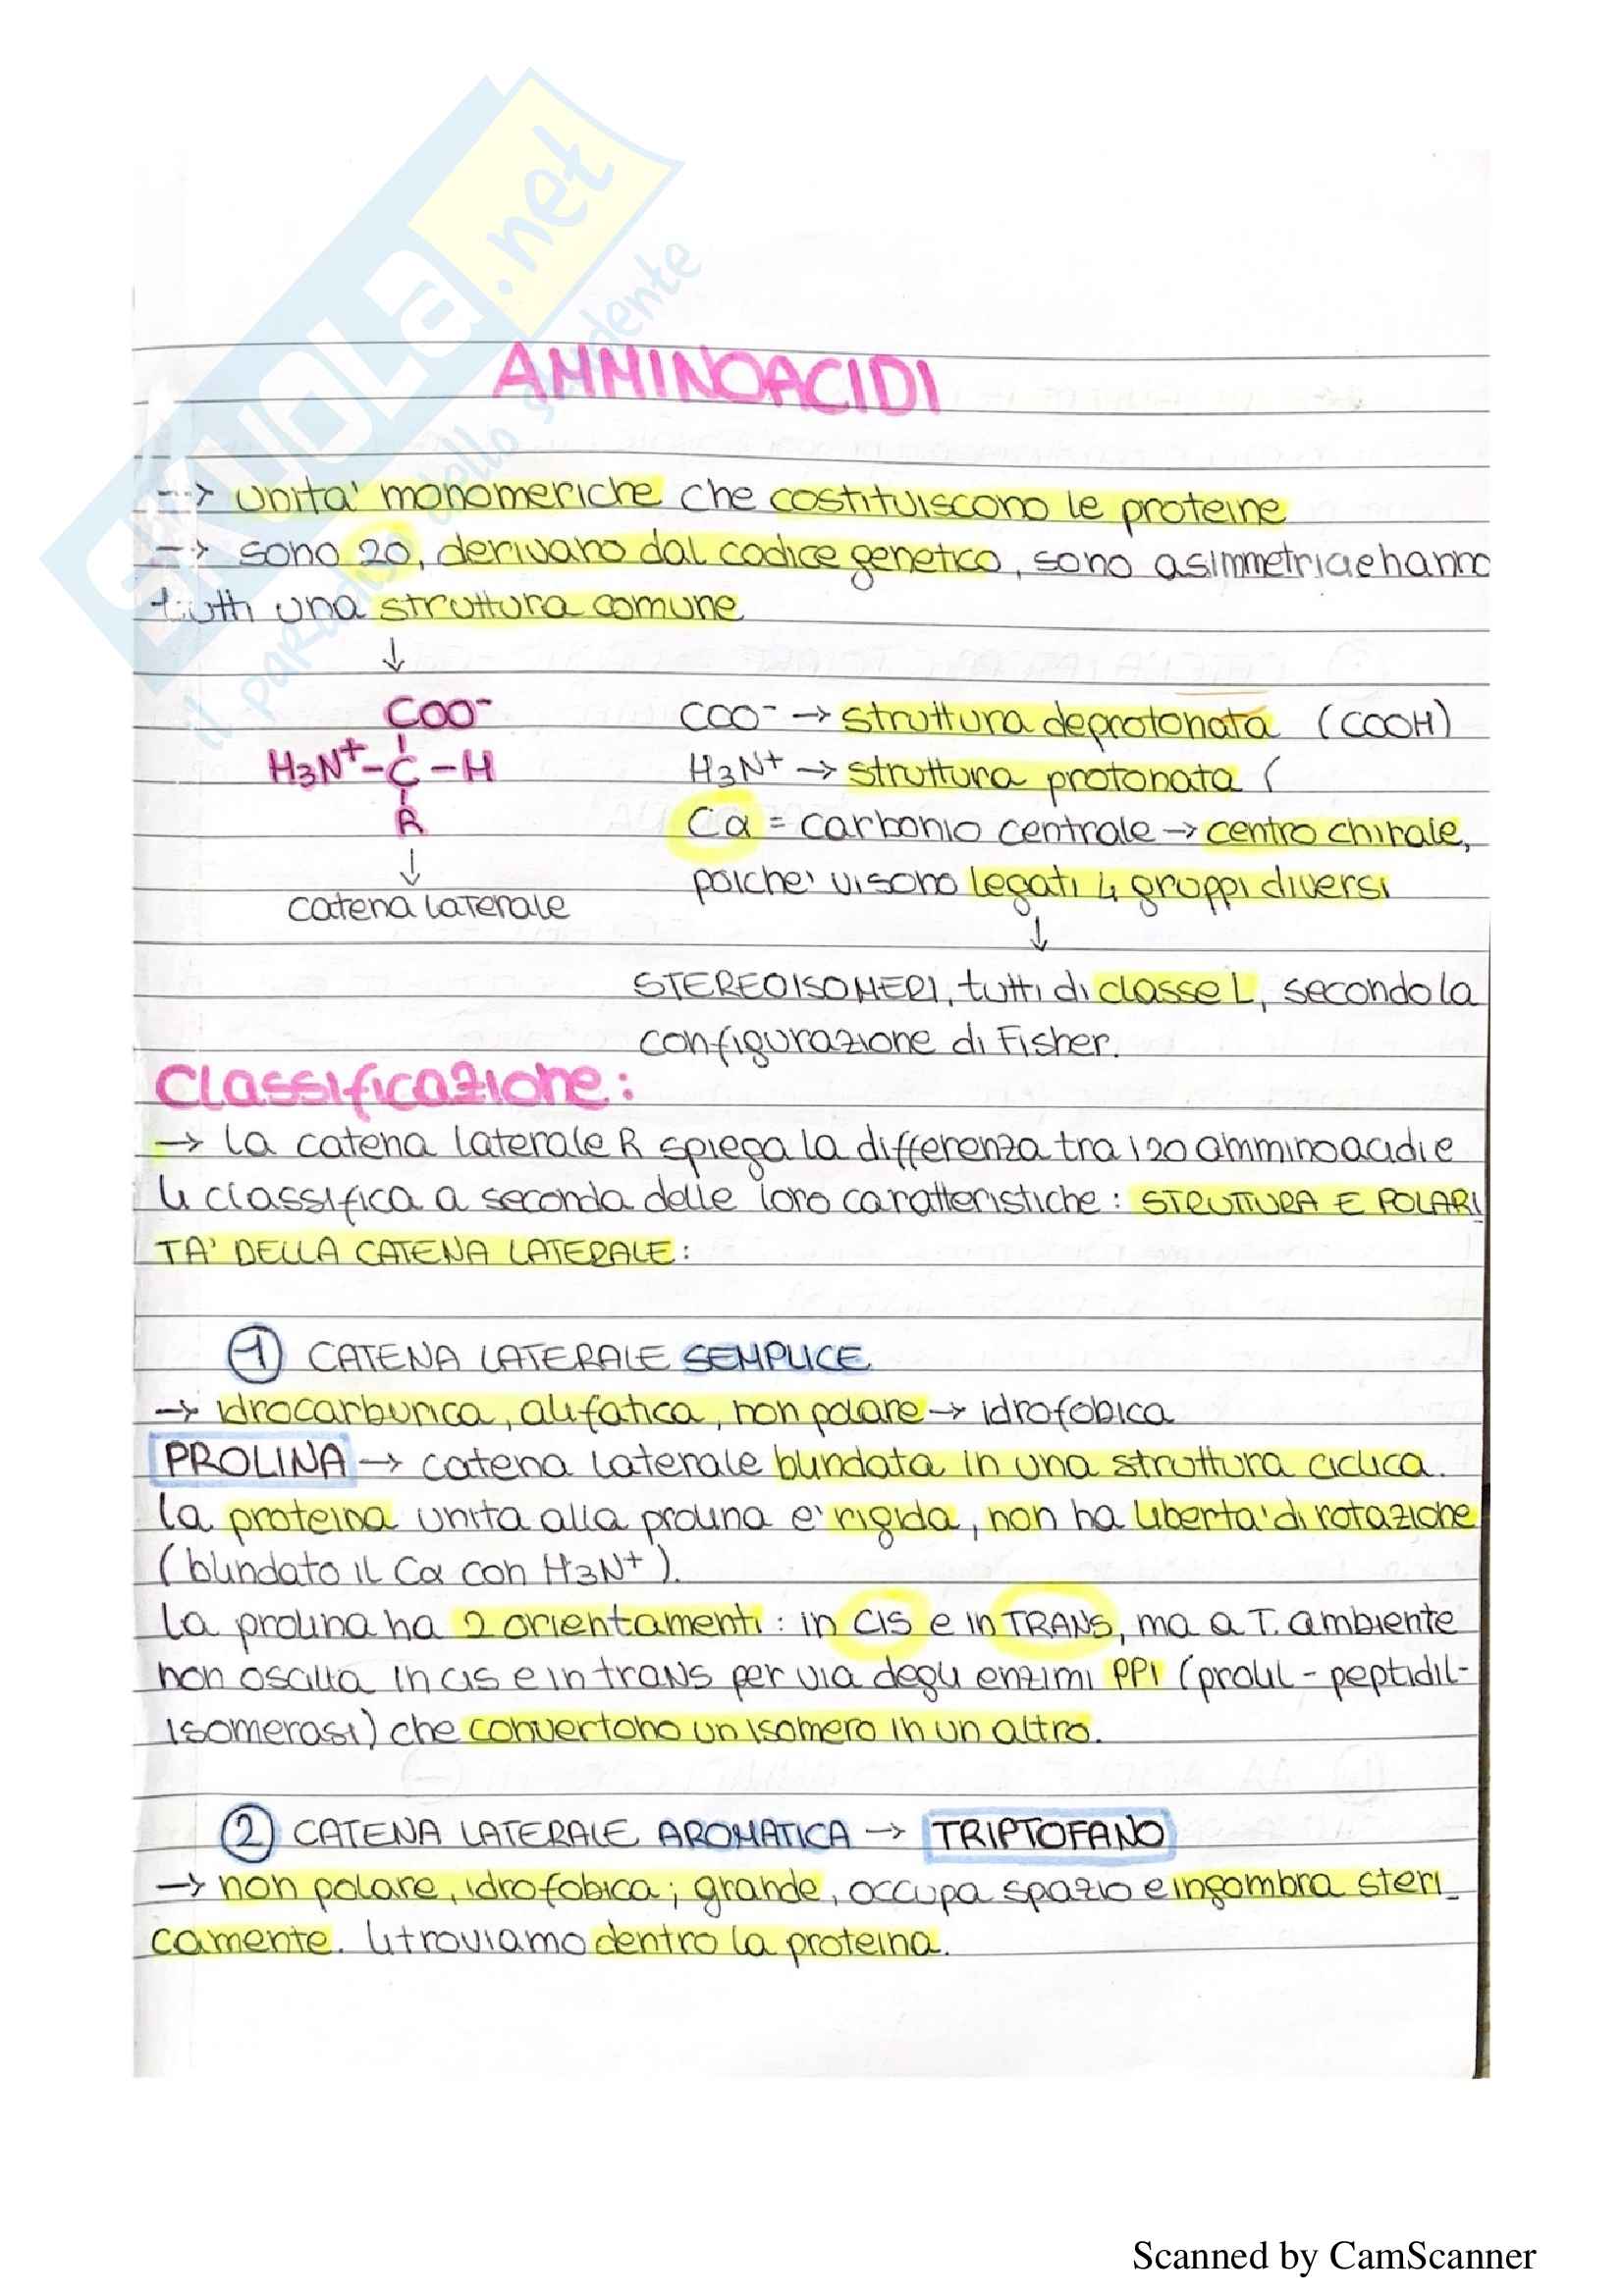 SKUOLA.net
il paradiso dello studente
AMMINOACIDI
--> unita' monomeriche che costituiscono le proteine
--> sono 20, derivano dal codice genetico, sono asimmetrici e hanno
tutti una struttura comune
↓
COO⁻
H3N⁺-C-H
R
↓
catena laterale
COO⁻ → struttura deprotonata (COOH)
H3N⁺ → struttura protonata (
Cα = carbonio centrale → centro chirale,
poiche' vi sono legati 4 gruppi diversi
↓
STEREOISOMERI, tutti di classe L, secondo la
configurazione di Fisher.
Classificazione:
→ la catena laterale R spiega la differenza tra i 20 amminoacidi e
li classifica a seconda delle loro caratteristiche: STRUTTURA E POLARI
TA' DELLA CATENA LATERALE:
① CATENA LATERALE SEMPLICE
→ idrocarburica, alifatica, non polare → idrofobica
PROLINA → catena laterale blindata in una struttura ciclica.
la proteina unita alla prolina e' rigida, non ha liberta' di rotazione
(blindato il Cα con H3N⁺).
la prolina ha 2 orientamenti: in CIS e in TRANS, ma a T. ambiente
non oscilla in cis e in trans per via degli enzimi PPI (prolil-peptidil-
isomerasi) che convertono un isomero in un altro.
② CATENA LATERALE AROMATICA → TRIPTOFANO
→ non polare, idrofobica; grande, occupa spazio e ingombra steri_
camente. li troviamo dentro la proteina.
Scanned by CamScanner